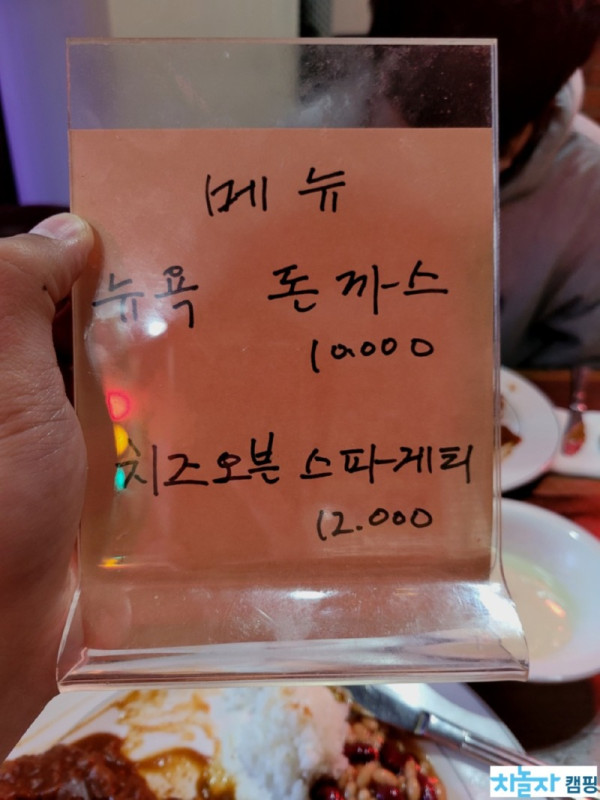 메뉴
뉴욕 돈까스
10.000
치즈오븐 스파게티
12.000
차놀자 캠핑